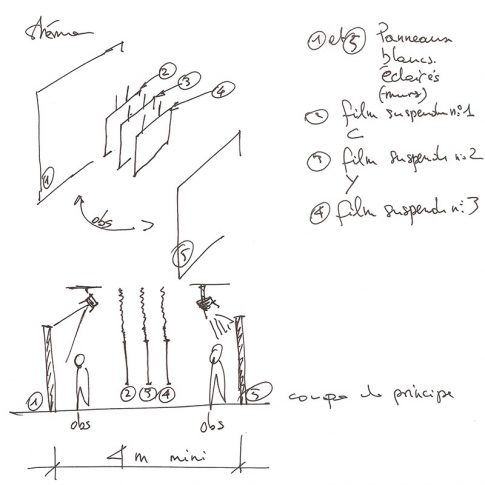 ① et ⑤ Panneaux
blancs
éclairés
(murs)
② film suspendu n:1
C
③ film suspendu n:2
Y
④ film suspendu n:3
②
③
④
①
obs
⑤
① obs ② ③ ④ obs ⑤
coupe de principe
4 m mini